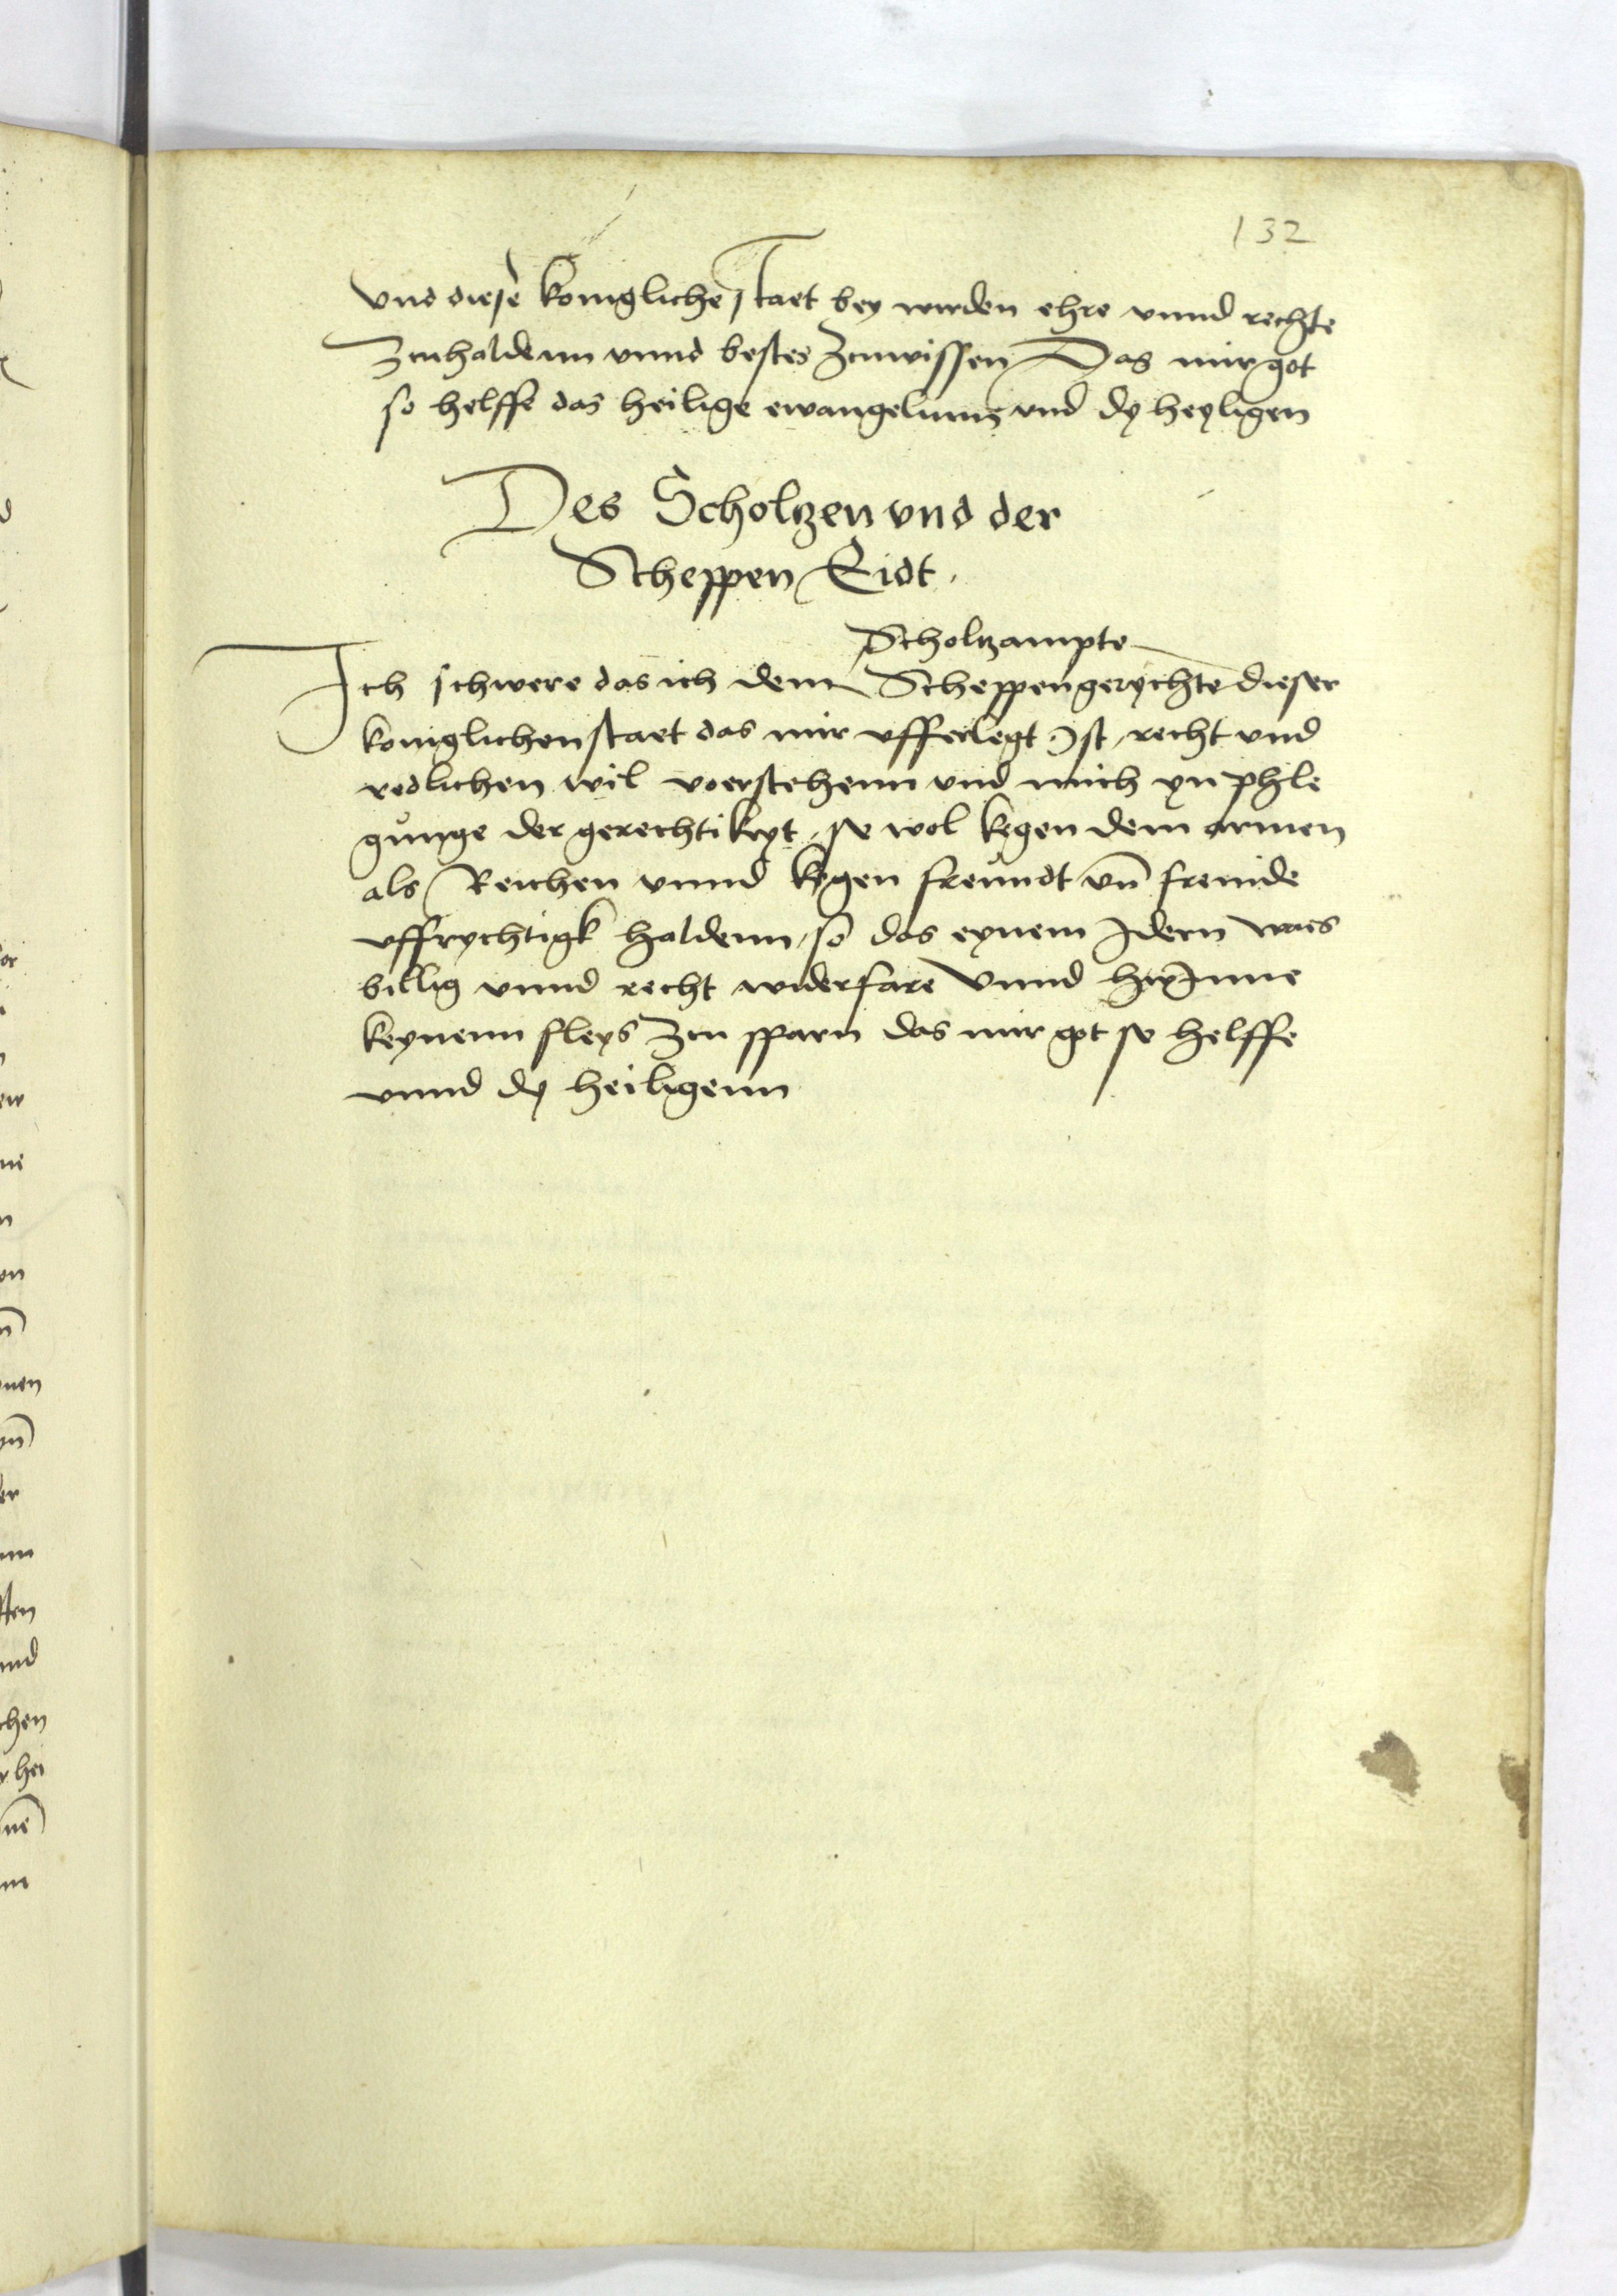 132
vnd diese konigliche staet bey wirden ehre vnnd rechte
Zcuhaldenn vnnd bestes Zcuwissen Das mir got
so helffe das heilige ewangelium vnd dy heyligen
Des Scholtzen vnd der
Scheppen Eidt.
Scholtzampte
Ich schwere das ich dem Scheppengerychte dieser
koniglichen staet das mir vfferlegt Ist, recht vnd
redlichen wil voerstehenn vnd mich yn phle
gunge der gerechtikeyt, so wol kegen dem armen
als Reichen vnnd kegen freundt vn̄ fremde
vffrychtigk haldenn, so das eynem Idern waes
billig vnnd recht widerfare Vnnd hirInne
keynenn fleys Zcu sparn das mir got so helffe
vnnd dy heiligenn